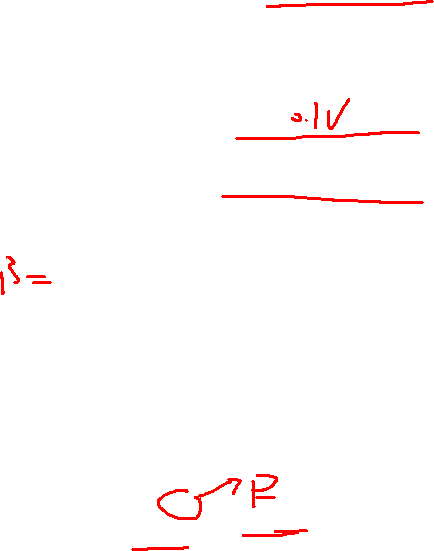 0.1V
β=
F